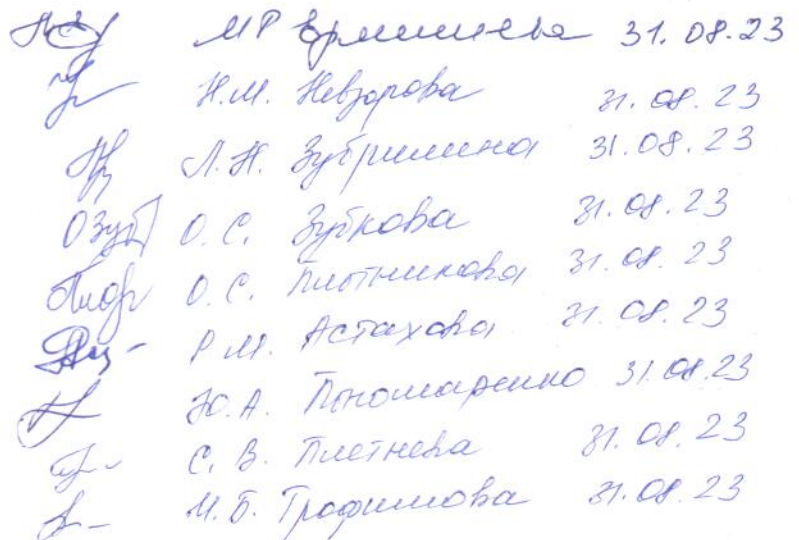 М Р 31.08.23
Н.М. Невзорова 31.08.23
Л.Н. Зубрилина 31.08.23
ОЗуб О.С. Зубкова 31.08.23
О.С. Плотникова 31.08.23
Р.М. Астахова 31.08.23
Ю.А. Пономаренко 31.08.23
С.В. Плетнева 31.08.23
М.Б. Трофимова 31.08.23